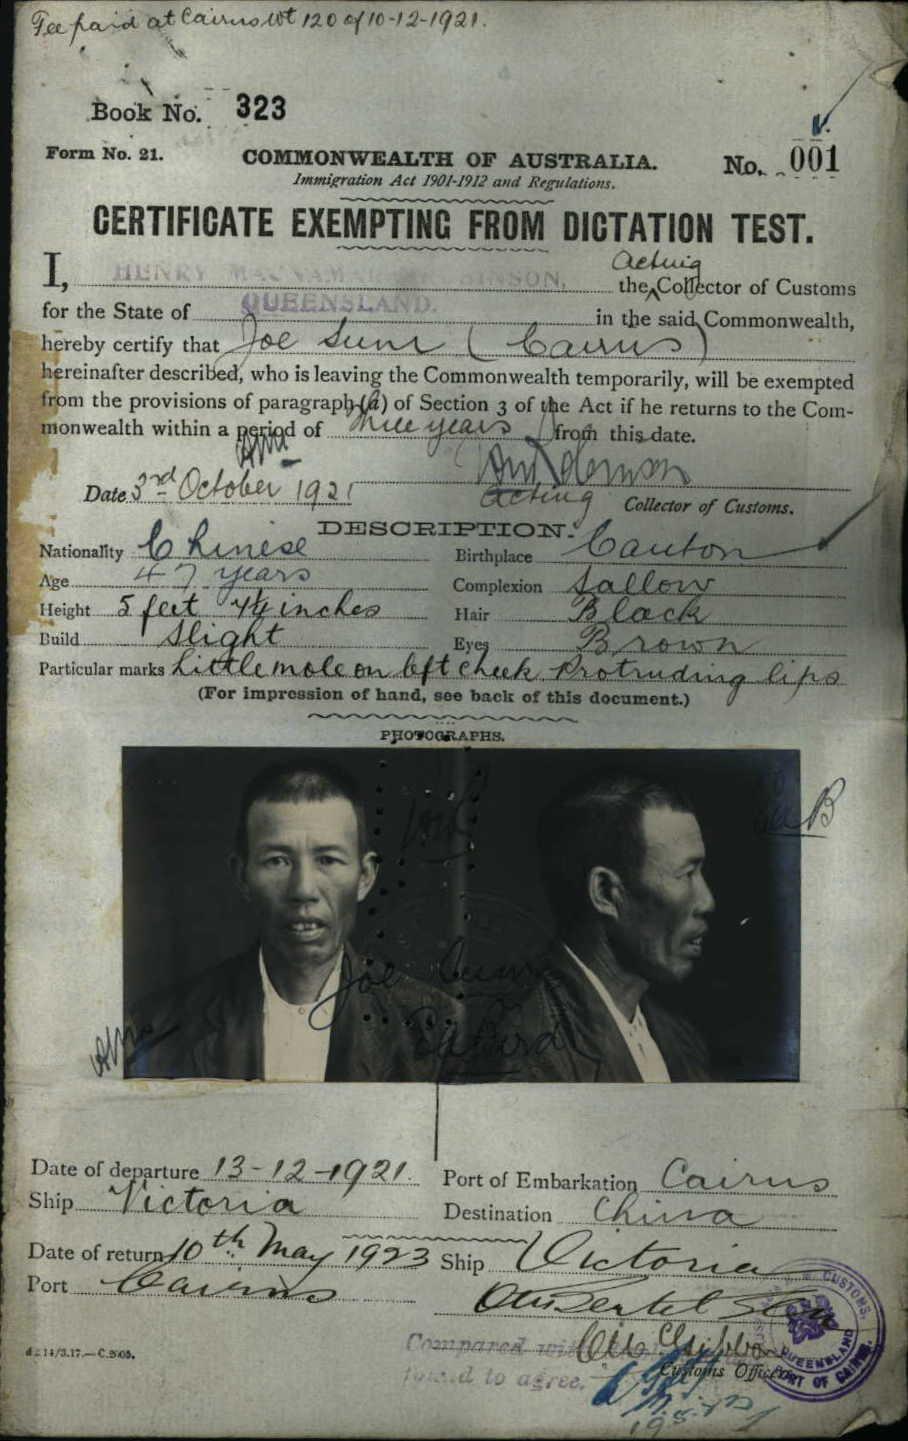 Fee paid at Cairns wt 120 of 10-12-1921.
Book No. 323
Form No. 21.
COMMONWEALTH OF AUSTRALIA.
No. 001
Immigration Act 1901-1912 and Regulations.
CERTIFICATE EXEMPTING FROM DICTATION TEST.
I, HENRY the Acting Collector of Customs
for the State of QUEENSLAND. in the said Commonwealth,
hereby certify that Joe Sum (Cairns)
hereinafter described, who is leaving the Commonwealth temporarily, will be exempted
from the provisions of paragraph (a) of Section 3 of the Act if he returns to the Com-
monwealth within a period of three years from this date.
Date 3rd October 1921
Acting Collector of Customs.
DESCRIPTION.
Nationality Chinese Birthplace Canton
Age 47 years Complexion Sallow
Height 5 feet 4¼ inches Hair Black
Build Slight Eyes Brown
Particular marks Little mole on left cheek Protruding lips
(For impression of hand, see back of this document.)
PHOTOGRAPHS.
Joe
Date of departure 13-12-1921. Port of Embarkation Cairns
Ship Victoria Destination China
Date of return 10th May 1923 Ship Victoria
Port Cairns
Customs Officer
CUSTOMS, QUEENSLAND PORT OF CAIRNS.
Compared with
found to agree.
C.2605.